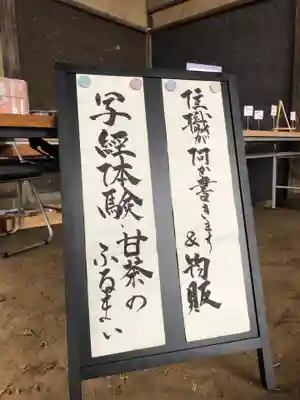 住職が何か書きます
&物販
写経体験・甘茶の
ふるまい